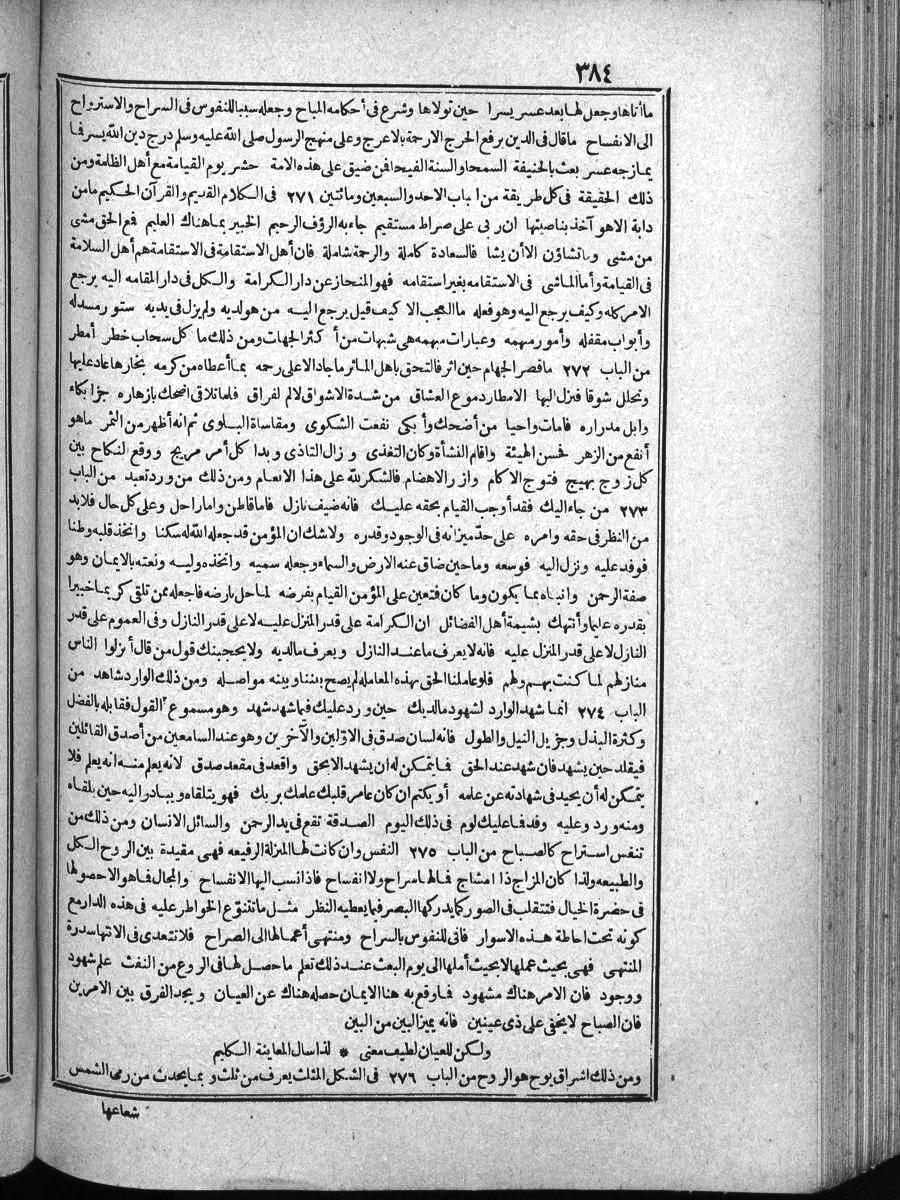 ٣٨٤
ما أتاها وجعل لها بعد عسر يسرا حين تولاها وشرع فى أحكامه المباح وجعله سببا للنفوس فى السراح والاسترواح
الى الانفساح ما قال فى الدين برفع الحرج الارحمة بالاعرج وعلى منهج الرسول صلى الله عليه وسلم درج دين الله يسر فما
يمازجه عسر بعث بالحنيفة السمحا والسنة الفيحا فمن ضيق على هذه الامة حشر يوم القيامة مع أهل الظلمة ومن
ذلك الحقيقة فى كل طريقة من الباب الاحد والسبعين ومائتين ٢٧١ فى الكلام القديم والقرآن الحكيم ما من
دابة الا هو آخذ بناصيتها ان ربى على صراط مستقيم جاء به الرؤف الرحيم الخبير بما هناك العليم فمع الحق مشى
من مشى وما تشاؤن الا أن يشا فالسعادة كاملة والرحمة شاملة فان أهل الاستقامة فى الاستقامة هم أهل السلامة
فى القيامة وأما الماشى فى الاستقامه بغير استقامه فهو المنحاز عن دار الكرامة والكل فى دار المقامه اليه يرجع
الامر كله وكيف يرجع اليه وهو فعله ما العجب الا كيف قيل يرجع اليه من هو لديه ولم يزل فى يديه ستور مسدله
وأبواب مقفله وأمور مبهمه وعبارات مبهمه هى شبهات من أكثر الجهات ومن ذلك ما كل سحاب خطر أمطر
من الباب ٢٧٢ ما قصر الجهام حين اثر فالتحق باهل المآثر ما جاد الاعلى رحمه بما أعطاه من كرمه بخارها عاد عليها
وتحلل شوقا فنزل اليها الامطار دموع العشاق من شدة الاشواق لالم لفراق فلما تلاقى اضحك بازهاره جزا بكاء
وابل مدراره فامات واحيا من أضحك وأبكى نفعت الشكوى ومقاساة البلوى ثم انه أظهر من الثمر ما هو
أنفع من الزهر فحسن الهيئة واقام النشأة وكان التغذى وزال التاذى وبدا كل أمر مريج ووقع النكاح بين
كل زوج بهيج فتوج الاكام وازر الاهضام فالشكر لله على هذا الانعام ومن ذلك من ورد تعبد من الباب
٢٧٣ من جاء اليك فقد أوجب القيام بحقه عليك فانه ضيف نازل فاما قاطن واما راحل وعلى كل حال فلا بد
من النظر فى حقه وامره على حد ميزانه فى الوجود وقدره ولا شك ان المؤمن قد جعله الله له سكنا واتخذ قلبه وطنا
فوفد عليه ونزل اليه فوسعه وما حين ضاق عنه الارض والسماء وجعله سميه واتخذه وليه ونعته بالايمان وهو
صفة الرحمن وانباه بما يكون وما كان فتعين على المؤمن القيام بفرضه لما حل بارضه فاجعله ممن تلقى كريما خبيرا
بقدره عليما وأنتهك بشيمة أهل الفضائل ان الكرامة على قدر المنزل عليه لا على قدر النازل وفى العموم على قدر
النازل لا على قدر المنزل عليه فانه لا يعرف ما عند النازل ويعرف ما لديه ولا يحجبنك قول من قال أنزلوا الناس
منازلهم لما كنت بهم ولهم فلو عاملنا الحق بهذه المعامله لم يصح بيننا وبينه مواصله ومن ذلك الوارد شاهد من
الباب ٢٧٤ انما شهد الوارد لشهوده ما لديك حين ورد عليك فبما شهد شهد وهو مسموع القول فقابله بالفضل
وكثرة البذل وجزيل النيل والطول فانه لسان صدق فى الاولين والآخرين وهو عند السامعين من أصدق القائلين
فيقلد حين يشهد فان شهد عند الحق فما يتمكن له أن يشهد الا بحق واقعد فى مقعد صدق لانه يعلم منه انه يعلم فلا
يتمكن له أن يحيد فى شهادته عن علمه أو يكتم ان كان عامر قلبك علمك بربك فهو يتلقاه ويبادر اليه حين يلقاه
ومنه ورد وعليه وفد فما عليك لوم فى ذلك اليوم الصدقة تقع فى يد الرحمن والسائل الانسان ومن ذلك من
تنفس استراح كالصباح من الباب ٢٧٥ النفس وان كانت لها المنزلة الرفيعه فهى مقيدة بين الروح الكل
والطبيعه ولذا كان المزاج ذا امشاج فما لها سراح ولا انفساح فاذا نسب اليها الانفساح والمجال فما هو الا حصولها
فى حضرة الخيال فتتقلب فى الصور كما يدركها البصر فيما يعطيه النظر مثل ما تتنوع الخواطر عليه فى هذه الدار مع
كونه تحت احاطة هذه الاسوار فانى للنفوس بالسراح ومنتهى أعمالها الى الصراح فلا تتعدى فى الانتها سدرة
المنتهى فهى بحيث عملها لا بحيث أملها الى يوم البعث عند ذلك تعلم ما حصل لها فى الروع من النفث علم شهود
ووجود فان الامر هناك مشهود فما وقع به هنا الايمان حصله هناك عن العيان ويجد الفرق بين الامرين
فان الصباح لا يخفى على ذى عينين فانه يميز البين من البين
ولكن للعيان لطيف معنى * لذا سال المعاينة الكليم
ومن ذلك اشراق يوح هو الروح من الباب ٢٧٦ فى الشكل المثلث يعرف من ثلث وبما يحدث من رمى الشمس
شعاعها